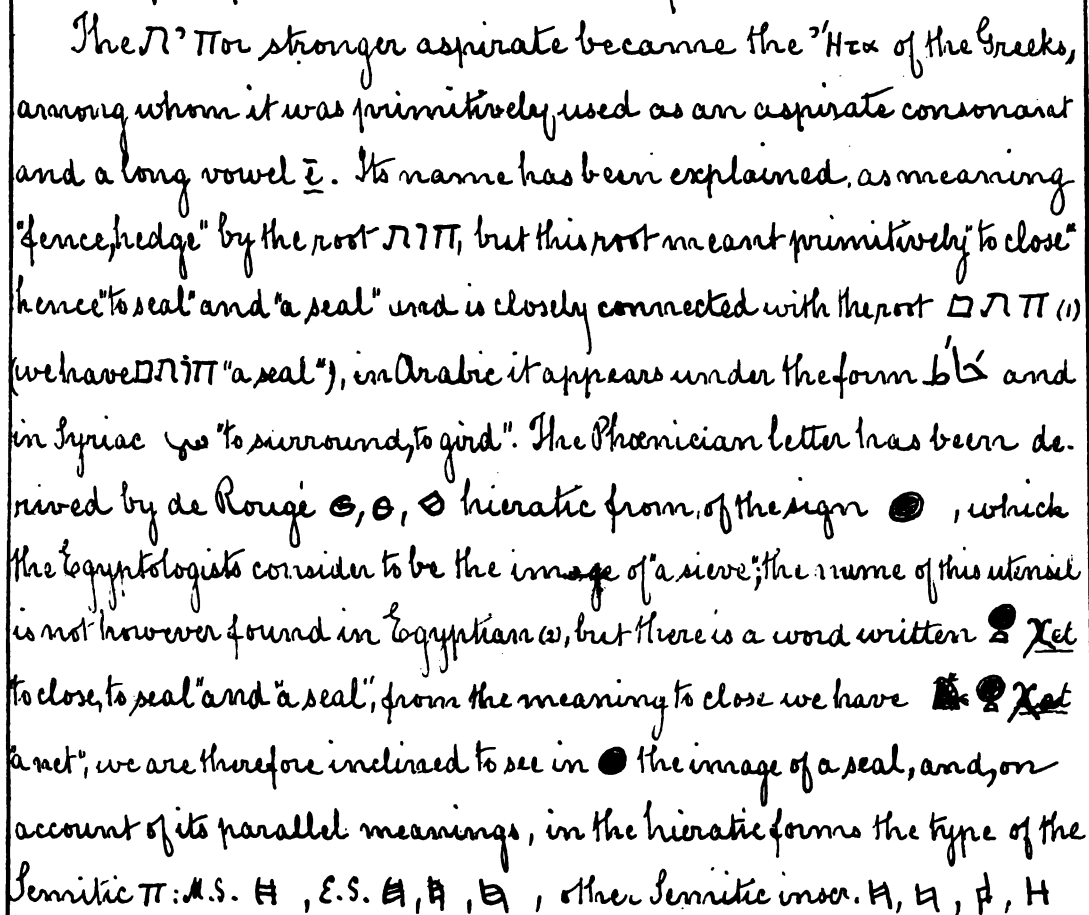 The חי״ת or stronger aspirate became the Ἦτα of the Greeks,
among whom it was primitively used as an aspirate consonant
and a long vowel ē. Its name has been explained, as meaning
"fence, hedge" by the root חות, but this root meant primitively "to close"
hence "to seal" and "a seal" und is closely connected with the root חתם (1)
(we have חותם "a seal"), in Arabic it appears under the form and
in Syriac "to surround, to gird". The Phœnician letter has been de-
rived by de Rougé hieratic from, of the sign , which
the Egyptologists consider to be the image of "a sieve"; the nume of this utensil
is not however found in Egyptian (2), but there is a word written χet
"to close, to seal" and "a seal", from the meaning to close we have χet
"a net", we are therefore inclined to see in the image of a seal, and, on
account of its parallel meanings, in the hieratic forms the type of the
Semitic ח : M.S. , E.S. , , , other Semitic inscr. , , ,